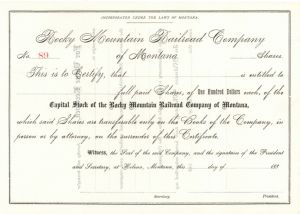 INCORPORATED UNDER THE LAWS OF MONTANA.
Rocky Mountain Railroad Company
No. 89 of Montana. Shares
This is to Certify, that is entitled to
full paid Shares, of One Hundred Dollars each, of the
Capital Stock of the Rocky Mountain Railroad Company of Montana,
which said Shares are transferable only on the Books of the Company, in
person or by attorney, on the surrender of this Certificate.
Witness, the Seal of the said Company, and the signatures of the President
and Secretary, at Helena, Montana, this day of 188
Secretary. President.